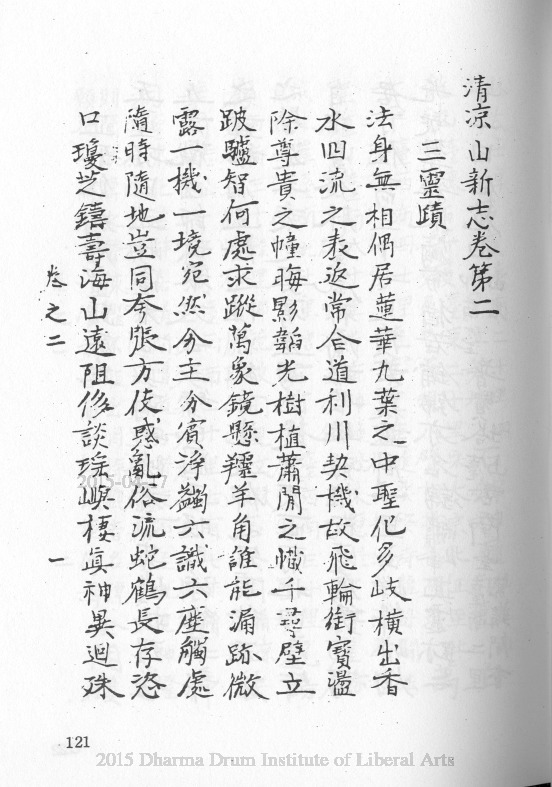 清涼山新志卷第二
三靈蹟
法身無相偶居蓮華九葉之中聖化多岐橫出香
水四流之表返常合道利川契機故飛輪御寶溫
除尊貴之幢晦影韜光樹植蕭閒之幟千尋壁立
跛驢智何處求蹤萬象鏡懸羚羊角誰能漏跡微
露一機一境宛然分主分賓淨蠲六識六塵觸處
隨時隨地豈同夸張方伎惑亂俗流蛇鶴長存恣
口瓊芝鑄壽海山遠阻侈談瑤嶼棲真神異迴殊
卷之二
一
121
2015-04-17
2015 Dharma Drum Institute of Liberal Arts